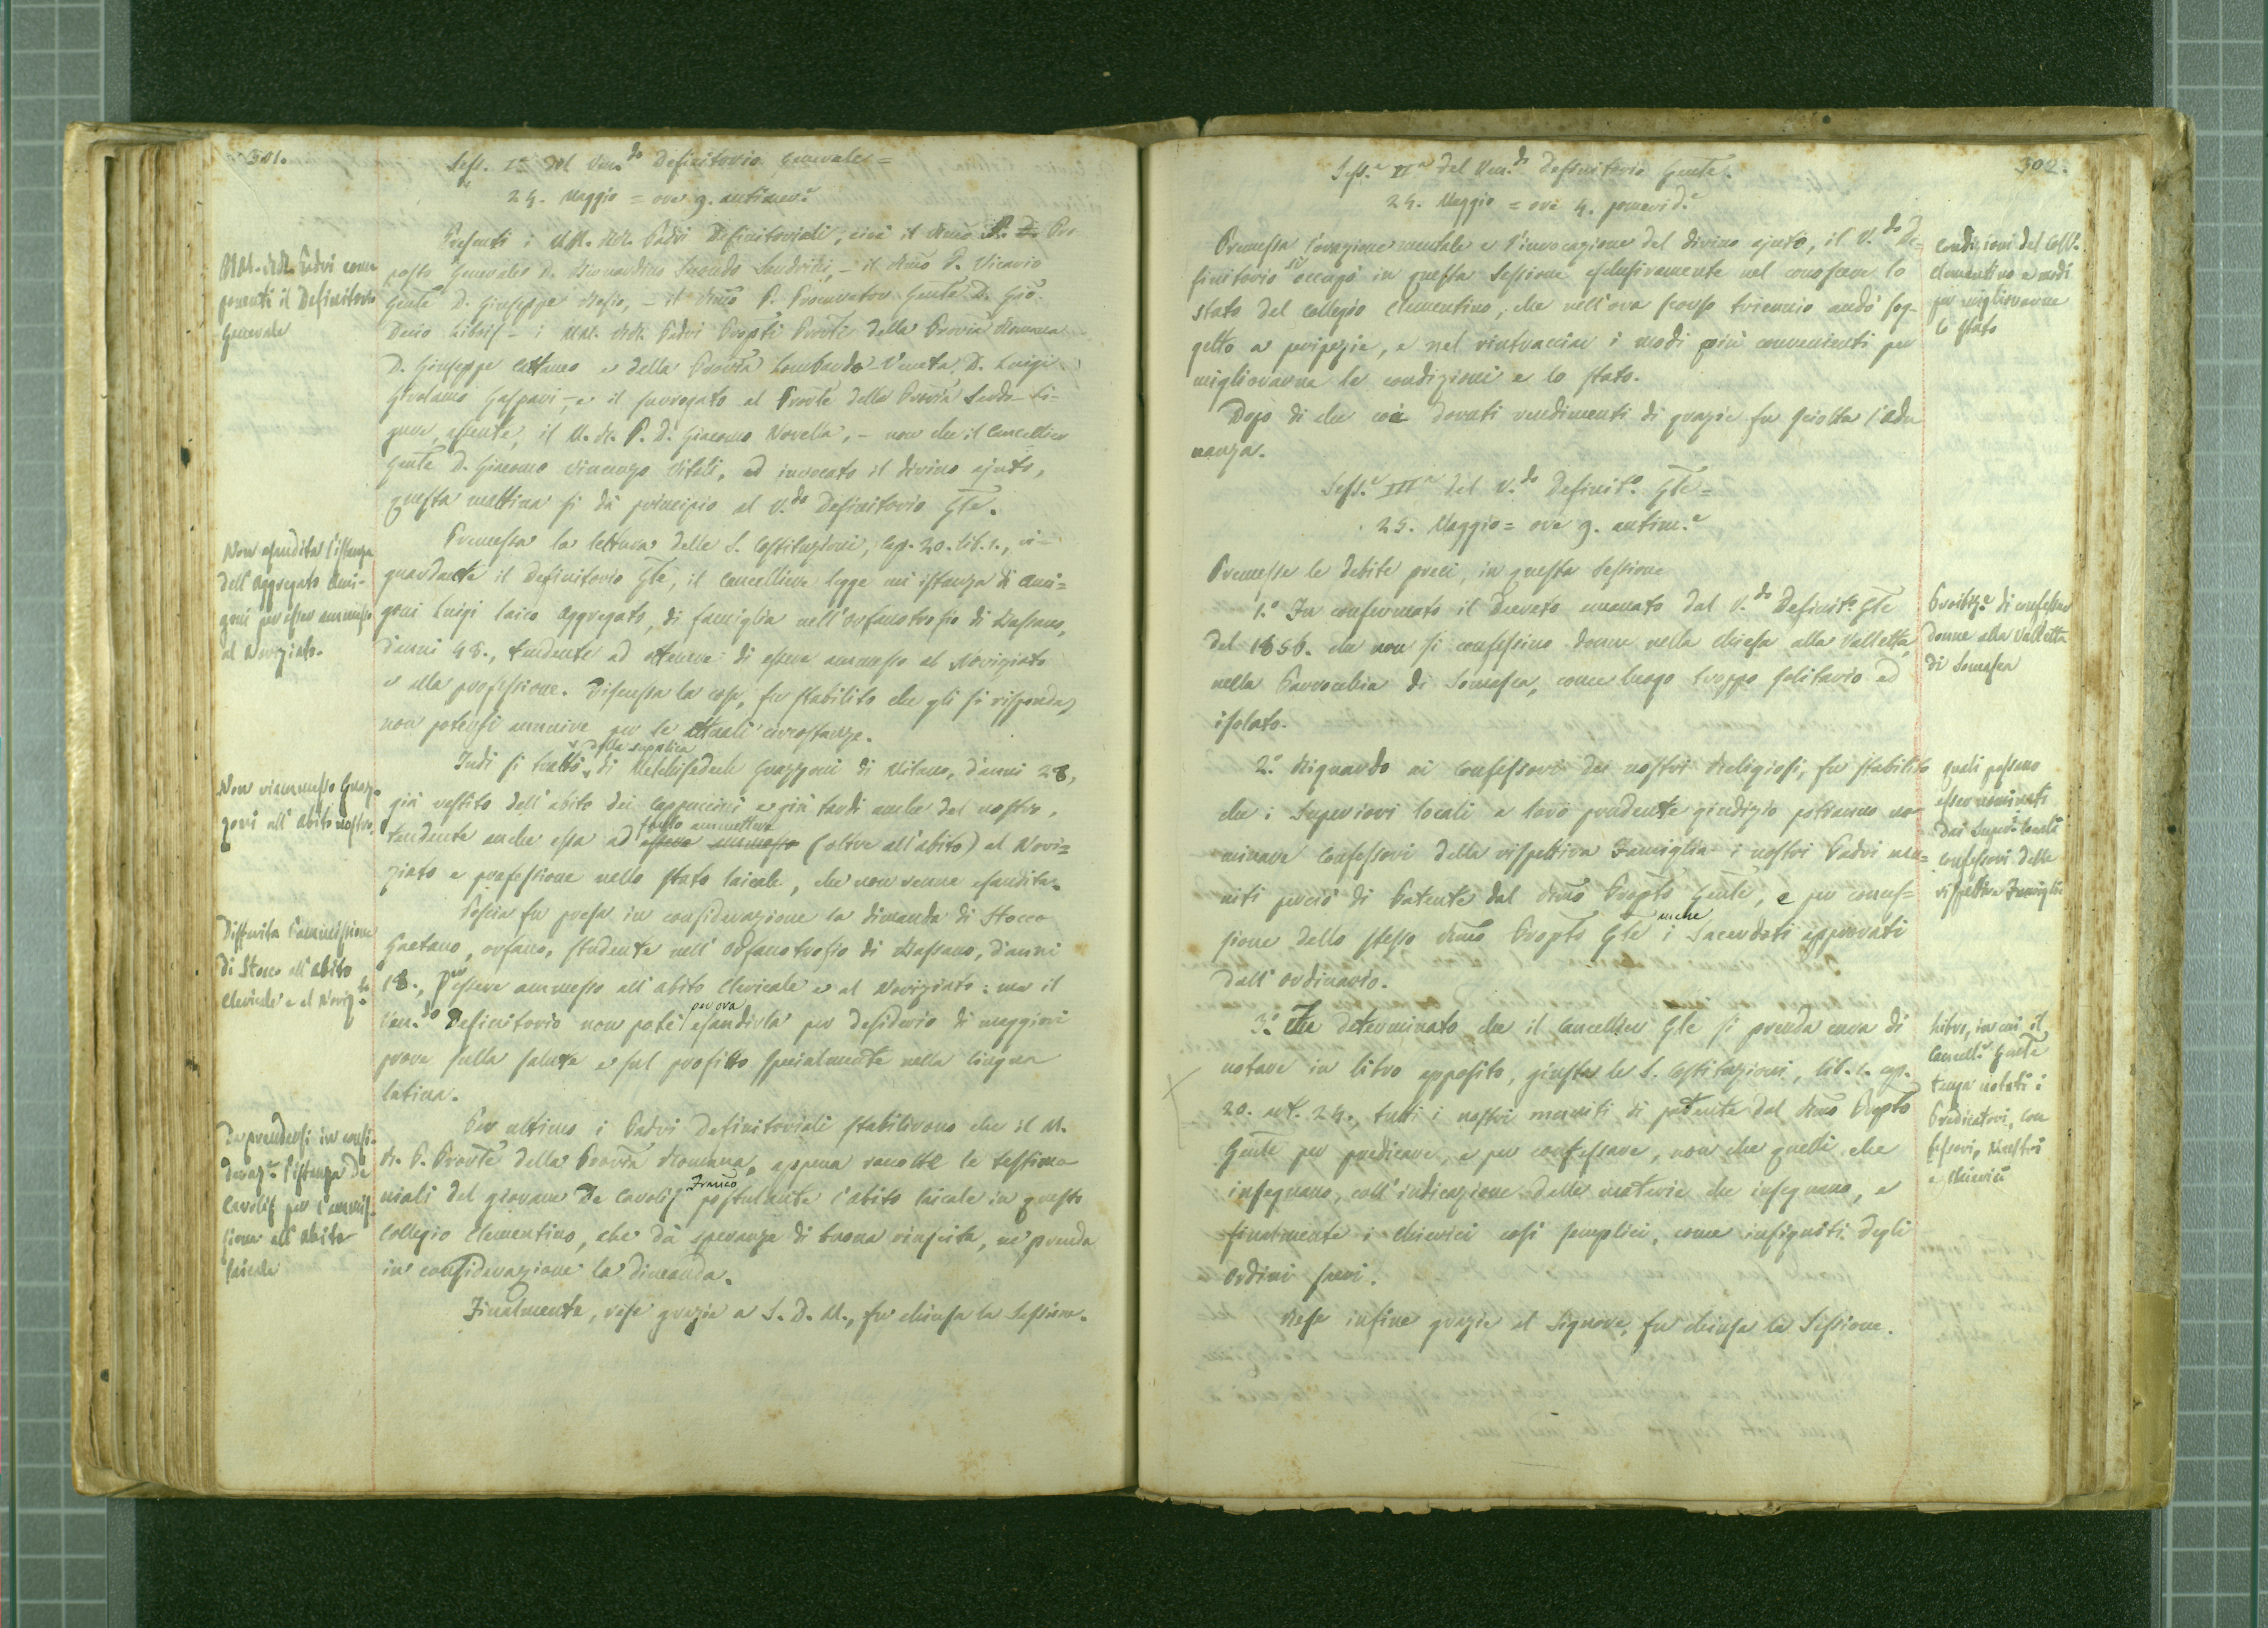 301.
Sess. Iª del Ven.do Definitorio Generale =
24. Maggio = ore 9. antimer.e
MM. RR. Padri com
ponenti il Definitorio
Generale
Presenti i MM. RR. Padri Definitoriali, cioè il Rmo P. D. Pre
posto Generale D. Bernardino Secondo Sandrini, - il Rmo P. Vicario
Gnle D. Giuseppe Besio, - il Rmo P. Procurator Gnle D. Gio.
Decio Libois - i MM. RR. Padri Propsti Provli della Provia Romana
D. Giuseppe Cattaneo e della Provia Lombardo-Veneta D. Luigi
Girolamo Gaspari -, e il surrogato al Provle della Provia Sardo-Li-
gure, assente, il M. R. P. D. Giacomo Novella, - non che il Cancelliere
Gnle D. Giacomo Vincenzo Vitali, ed invocato il divino ajuto,
questa mattina si dà principio al V.do Definitorio Gle.
Non esaudita l'istanza
dell'Aggregato Ami-
goni per esser ammesso
al Noviziato.
Premessa la lettura delle S. Costituzioni, Cap. 20. lib. 1., ri-
guardante il Definitorio Gle, il Cancelliere legge un istanza di Ami=
goni Luigi laico Aggregato, di famiglia nell'orfanotrofio di Bassano,
d'anni 48., tendente ad ottenere di essere ammesso al Noviziato
e alla professione. Discussa la cosa, fu stabilito che gli si risponda,
non potersi annuire per le attuali circostanze.
Non riammesso Guaz-
zoni all'abito nostro.
Indi si trattò della supplica di Melchisedech Guazzoni di Milano, d'anni 28,
già vestito dell'abito dei Cappuccini e più tardi anche del nostro,
tendente anche essa ad essere ammesso farlo ammettere (oltre all'abito) al Novi=
ziato e professione nello stato laicale, che non venne esaudita.
Differita l'ammissione
di Stocco all'abito
Clericale e al Noviz.to
Poscia fu presa in considerazione la dimanda di Stocco
Gaetano, orfano, studente nell'Orfanotrofio di Bassano, d'anni
18., per essere ammesso all'abito Clericale e al Noviziato: ma il
Ven.do Definitorio non potè per ora esaudirla per desiderio di maggiori
prove sulla salute e sul profitto specialmente nella lingua
latina.
Da prendersi in consi-
deraz.e l'istanza De
Carolis per l'ammis-
sione all'abito
laicale
Per ultimo i Padri Definitoriali stabilirono che il M.
R. P. Provle della Provia Romana, appena raccolte le testimo
niali del giovane De Carolis Franco postulante l'abito laicale in questo
Collegio Clementino, che dà speranza di buona riuscita, ne prenda
in considerazione la dimanda.
Finalmente, rese grazie a S. D. M., fu chiusa la Sessione.
302.
Sess.e IIª del Ven.do Definitorio Gnle.
24. Maggio = ore 4. pomerid.e
Condizioni del Coll.o
Clementino e modi
per migliorarne
lo stato
Premessa l'orazione mentale e l'invocazione del divino ajuto, il V.do De=
finitorio si occupò in questa Sessione esclusivamente nel conoscere lo
stato del Collegio Clementino, che nell'ora scorso triennio andò sog-
getto a peripezie, e nel rintracciare i modi più convenienti per
migliorarne le condizioni e lo stato.
Dopo di che coi dovuti rendimenti di grazie fu sciolta l'adu
nanza.
Sess.e IIIª del V.do Definit.o Gle =
25. Maggio = ore 9. antim.e
Premesse le debite preci, in questa Sessione
Proibiz.e di confessar
donne alla Valletta
di Somasca
1.° Fu confermato il Decreto emanato dal V.do Definit.o Gle
del 1856. che non si confessino donne nella chiesa alla Valletta,
nella Parrocchia di Somasca, come luogo troppo solitario ed
isolato.
quali possano
esser nominati
dai Super.i locali
confessori della
rispettiva Famiglia
2.° Riguardo ai Confessori dei nostri Religiosi, fu stabilito
che i Superiori locali a loro prudente giudizio potranno no
minare Confessori della rispettiva Famiglia i nostri Padri mu=
niti perciò di Patente dal Rmo Propto Gnle, e per conces=
sione dello stesso Rmo Propto Gle anche i Sacerdoti approvati
dall'Ordinario.
Libro, in cui il
Cancell.e Gnle
tenga notati i
Predicatori, Con
fessori, Maestri
e Chierici
3.° Fu determinato che il Cancelliere Gle si prenda cura di
notare in libro apposito, giusta le S. Costituzioni, lib. 1. cap.
20. art. 24., tutti i nostri muniti di patente dal Rmo Propto
Gnle per predicare, e per confessare, non che quelli che
insegnano, coll'indicazione delle materie che insegnano, e
finalmente i chierici così semplici, come insigniti degli
Ordini sacri.
Rese infine grazie al Signore, fu chiusa la Sessione.